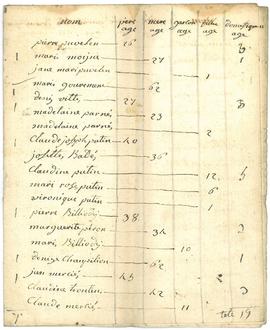 nom père age mere age garcon age fille age domestique age
pierre puvelin 26
mari moijne 27
jane mari puvelin 1
mari gouvenum 62
denis vitte 27
madelaina parné 23
madelaina parné 2
Claude joseph patin 40
josette Babé 36
Claudine patin 12
mari rose patin 6
vironique patin 1
pierre Billiody 38
marguerite piron 34
mari Billiody 10
denise Champilion 62
jan merciés 45
Claudina 42
Claude merciés 11
tole 19